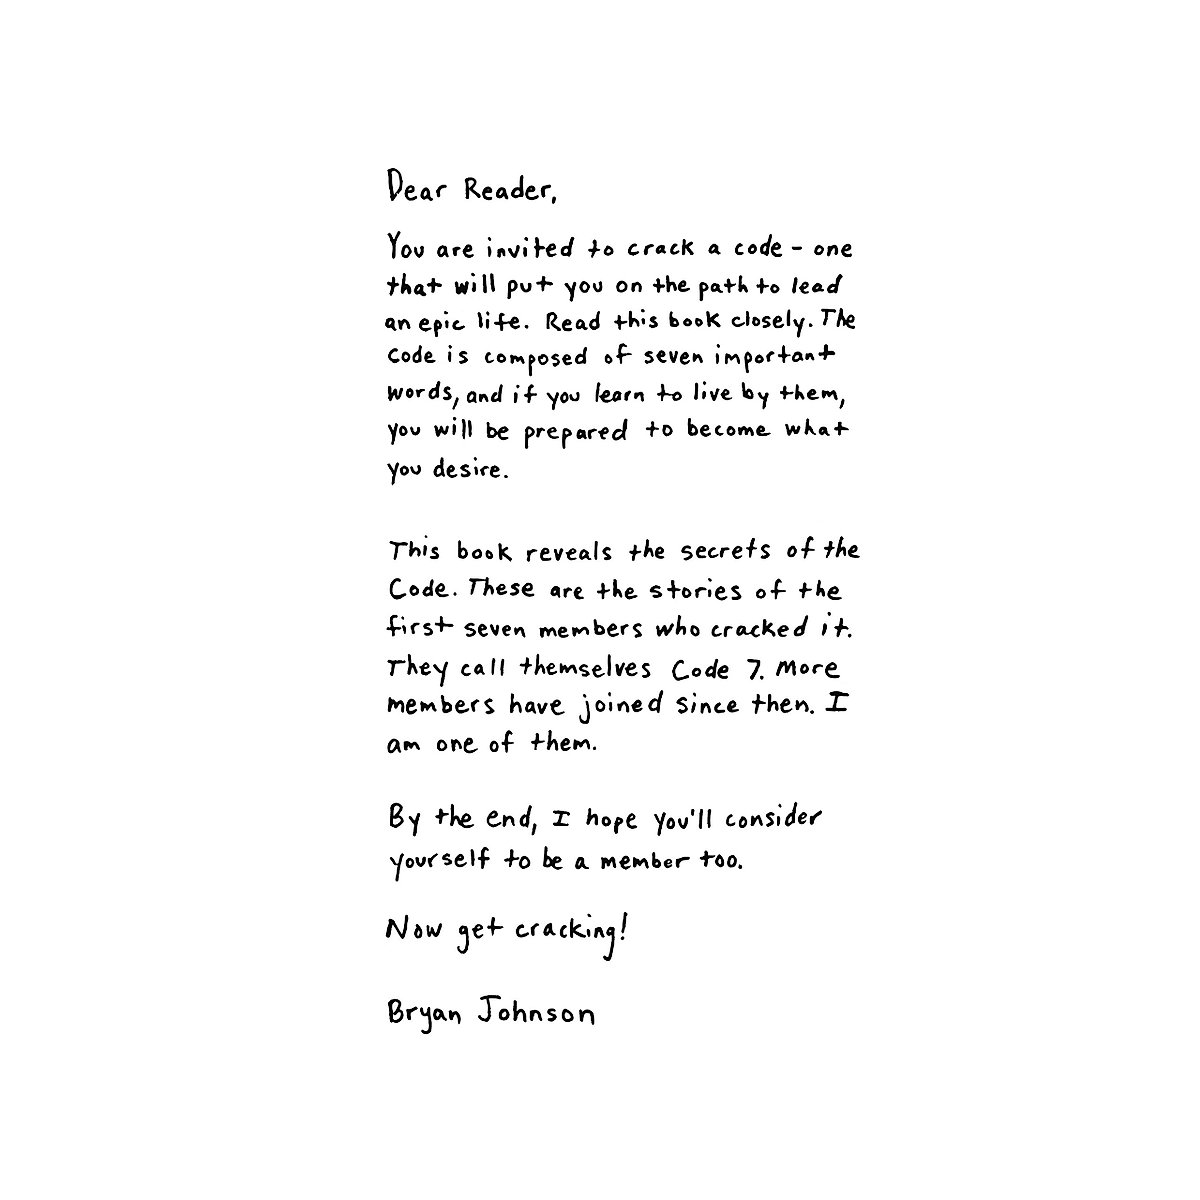 Dear Reader,
You are invited to crack a code - one
that will put you on the path to lead
an epic life. Read this book closely. The
Code is composed of seven important
words, and if you learn to live by them,
you will be prepared to become what
you desire.
This book reveals the secrets of the
Code. These are the stories of the
first seven members who cracked it.
They call themselves Code 7. More
members have joined since then. I
am one of them.
By the end, I hope you'll consider
yourself to be a member too.
Now get cracking!
Bryan Johnson